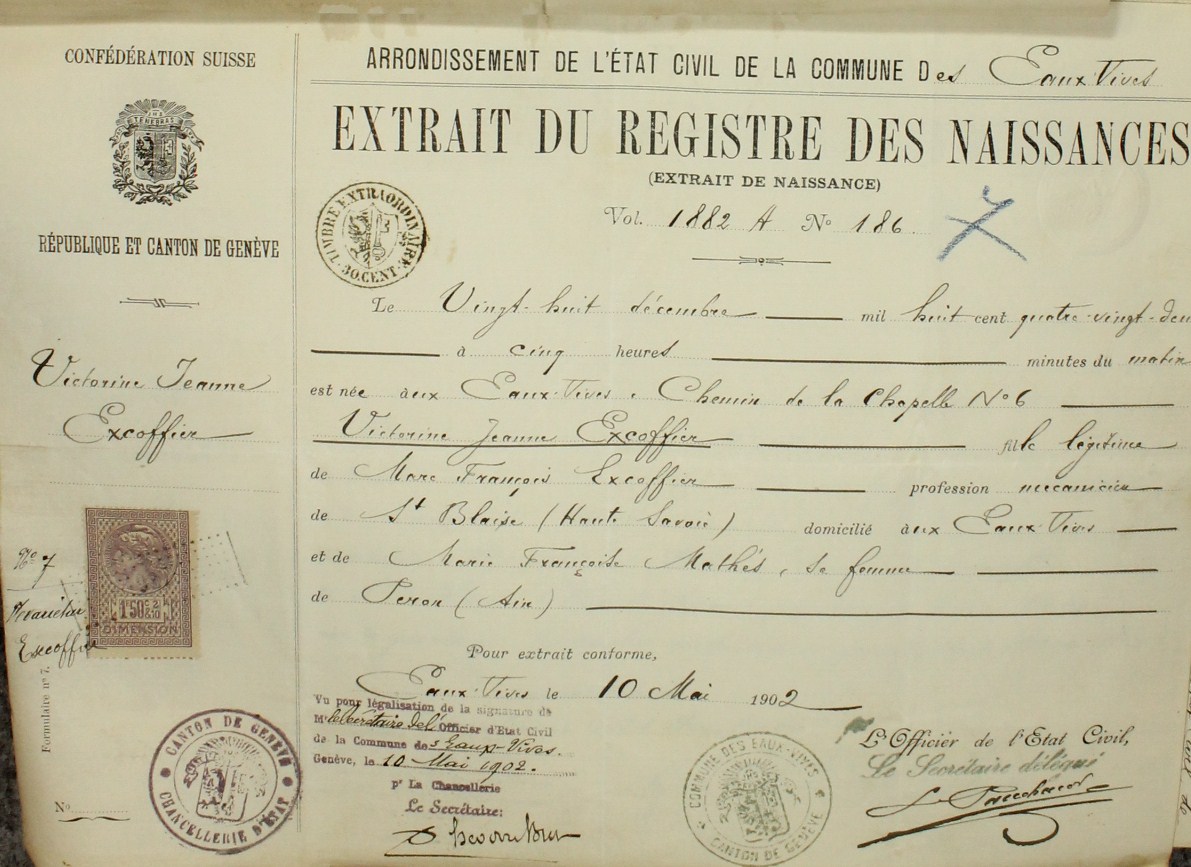 CONFÉDÉRATION SUISSE
POST TENEBRAS
RÉPUBLIQUE ET CANTON DE GENÈVE
Victorine Jeanne
Excoffier
No 7
Excoffier
1F50c 2/10
DIMENSION
Formulaire nº 7.
CANTON DE GENÈVE
CHANCELLERIE D'ÉTAT
No
ARRONDISSEMENT DE L'ÉTAT CIVIL DE LA COMMUNE Des Eaux-Vives
EXTRAIT DU REGISTRE DES NAISSANCES
(EXTRAIT DE NAISSANCE)
TIMBRE EXTRAORDINAIRE
30.CENT.
Vol. 1882 A No 186
7
Le Vingt-huit décembre mil huit cent quatre-vingt-deu
à cinq heures minutes du matin
est née aux Eaux-Vives, Chemin de la Chapelle No 6
Victorine Jeanne Excoffier fille légitime
de Marc François Excoffier profession mécanicien
de St Blaise (Haute Savoie) domicilié aux Eaux-Vives
et de Marie Françoise Mathés, sa femme
de Peron (Ain)
Pour extrait conforme,
Eaux-Vives le 10 Mai 1902
Vu pour légalisation de la signature de
Mr le Secrétaire de l'Officier d'Etat Civil
de la Commune des Eaux-Vives.
Genève, le 10 Mai 1902.
pr La Chancellerie
Le Secrétaire:
COMMUNE DES EAUX-VIVES
CANTON DE GENÈVE
L'Officier de l'Etat Civil,
Le Secrétaire délégué